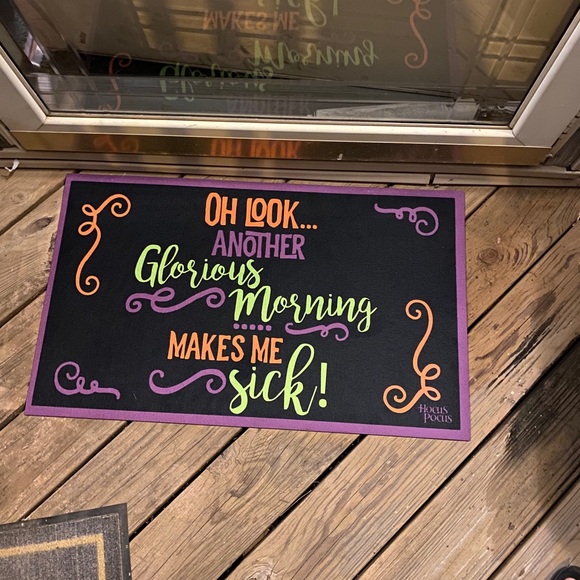 OH LOOK...
ANOTHER
Glorious
Morning
MAKES ME
sick!
HOCUS
POCUS